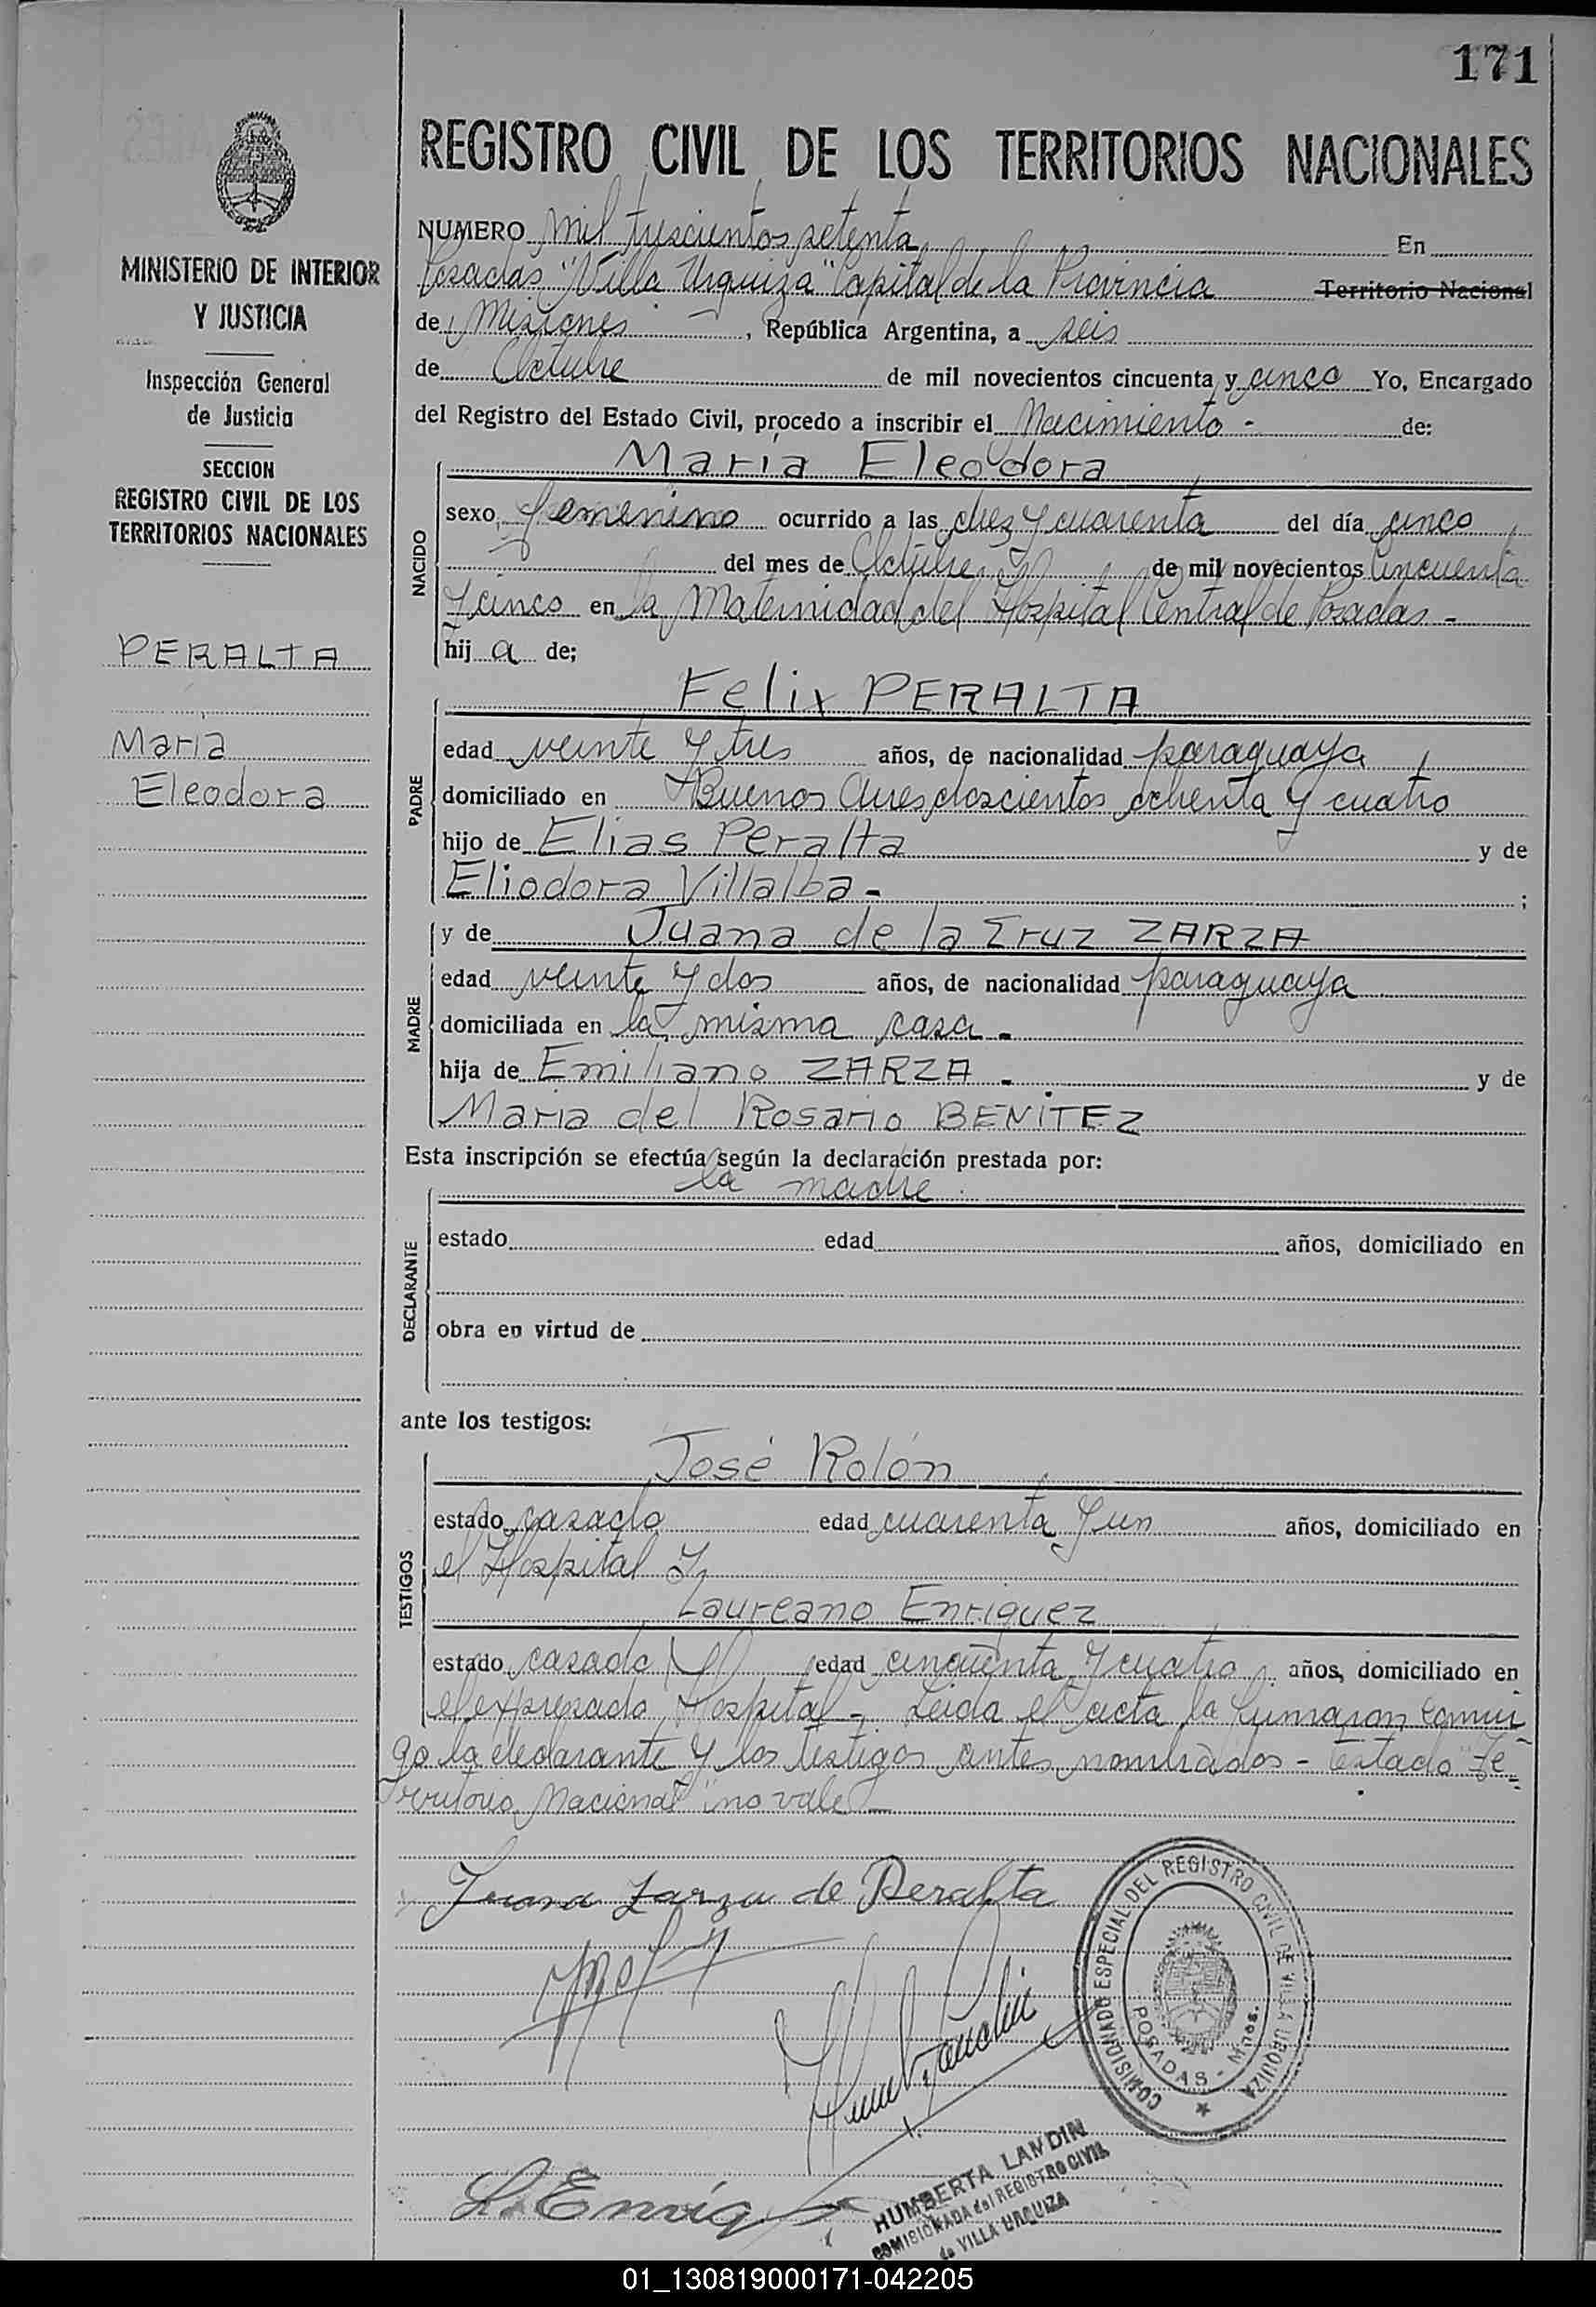 171
REGISTRO CIVIL DE LOS TERRITORIOS NACIONALES
MINISTERIO DE INTERIOR
Y JUSTICIA
Inspección General
de Justicia
SECCION
REGISTRO CIVIL DE LOS
TERRITORIOS NACIONALES
PERALTA
Maria
Eleodora
NUMERO mil trescientos setenta En
Posadas "Villa Urquiza" Capital de la Provincia Territorio Nacional
de Misiones, República Argentina, a seis
de Octubre de mil novecientos cincuenta y cinco Yo, Encargado
del Registro del Estado Civil, procedo a inscribir el Nacimiento - de:
NACIDO
María Eleodora
sexo femenino ocurrido a las diez y cuarenta del día cinco
del mes de Octubre de mil novecientos cincuenta
y cinco en la Maternidad del Hospital Central de Posadas -
hij a de;
PADRE
Felix PERALTA
edad veinte y tres años, de nacionalidad paraguaya
domiciliado en Buenos Aires doscientos ochenta y cuatro
hijo de Elias Peralta y de
Eliodora Villalba - ;
MADRE
y de Juana de la Cruz ZARZA
edad veinte y dos años, de nacionalidad paraguaya
domiciliada en la misma casa -
hija de Emiliano ZARZA - y de
Maria del Rosario BENITEZ
Esta inscripción se efectúa según la declaración prestada por:
DECLARANTE
la madre
estado edad años, domiciliado en
obra en virtud de
ante los testigos:
TESTIGOS
José Rolón
estado casado edad cuarenta y un años, domiciliado en
el Hospital y
Laureano Enriquez
estado casado edad cincuenta y cuatro años, domiciliado en
el expresado Hospital - Leida el acta la firmaron conmi
go la declarante y los testigos antes nombrados - Testado "Te
rritorio Nacional" no vale -
Juana Zarza de Peralta
COMISIONADO ESPECIAL DEL REGISTRO CIVIL DE VILLA URQUIZA
POSADAS - Mnes.
L. Enriq
HUMBERTA LANDIN
COMISIONADA del REGISTRO CIVIL
de VILLA URQUIZA
01_130819000171-042205